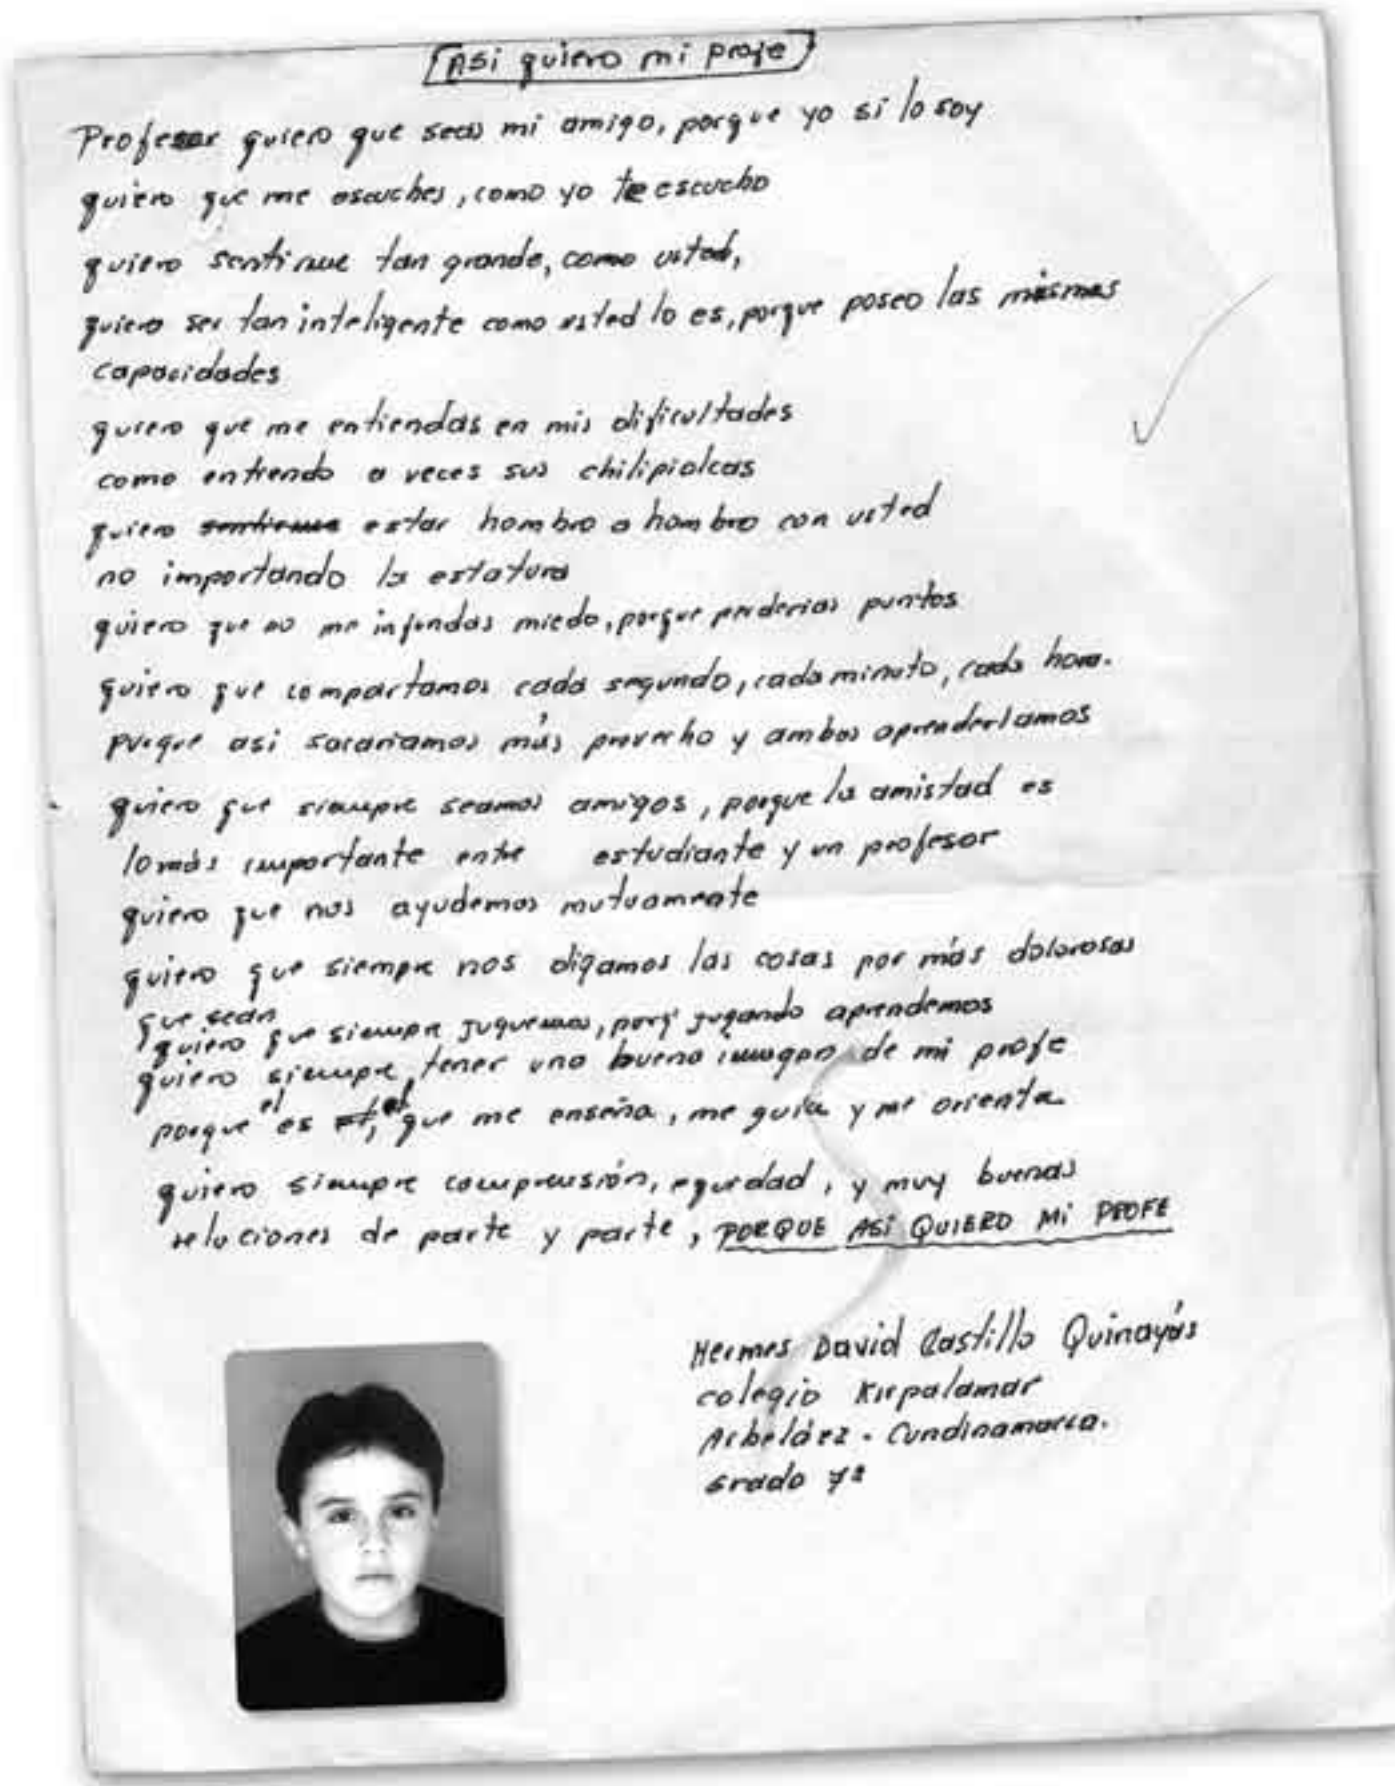 Asi quiero mi profe
Profesor quiero que seas mi amigo, porque yo si lo soy
quiero que me escuches, como yo te escucho
quiero sentirme tan grande, como usted,
quiero ser tan inteligente como usted lo es, porque poseo las mismas
capacidades
quiero que me entiendas en mis dificultades
como entiendo a veces sus
quiero estar hombro a hombro con usted
no importando la estatura
quiero que no me infundas miedo, porque perderias puntos
quiero que compartamos cada segundo, cada minuto, cada hora.
porque asi sacariamos más provecho y ambos aprenderiamos
quiero que siempre seamos amigos, porque la amistad es
lo más importante entre estudiante y un profesor
quiero que nos ayudemos mutuamente
quiero que siempre nos digamos las cosas por más dolorosas
que sean
quiero que siempre juguemos, porq' jugando aprendemos
quiero siempre, tener una buena imagen de mi profe
porque el es el que me enseña, me guia y me orienta
quiero siempre comprensión, equidad, y muy buenas
relaciones de parte y parte, PORQUE ASi QUIERO Mi PROFE
Hermes David Castillo Quinayás
colegio Kirpalamar
Arbeláez - Cundinamarca.
Grado 7º